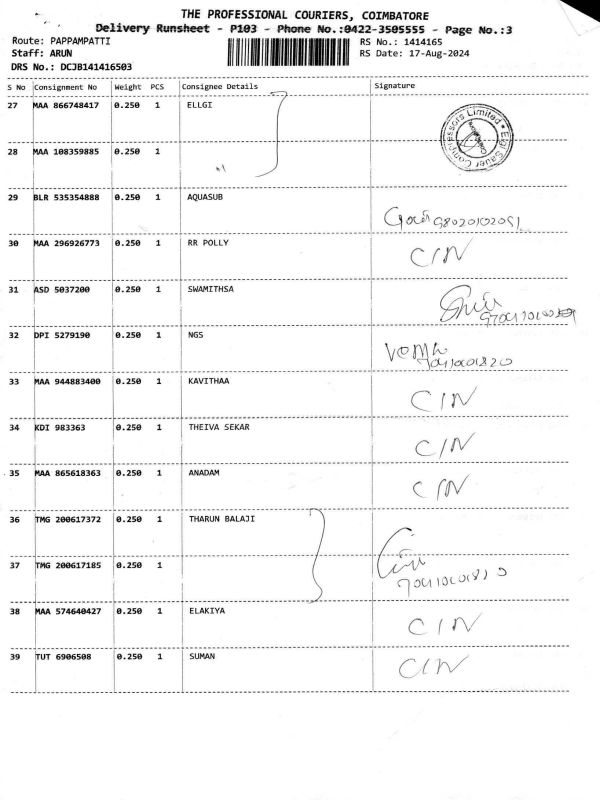 THE PROFESSIONAL COURIERS, COIMBATORE
Delivery Runsheet - P103 - Phone No.:0422-3505555 - Page No.:3
Route: PAPPAMPATTI RS No.: 1414165
Staff: ARUN RS Date: 17-Aug-2024
DRS No.: DCJB141416503
S No Consignment No Weight PCS Consignee Details Signature
27 MAA 866748417 0.250 1 ELLGI
28 MAA 108359885 0.250 1
29 BLR 535354888 0.250 1 AQUASUB
30 MAA 296926773 0.250 1 RR POLLY C/N
31 ASD 5037200 0.250 1 SWAMITHSA
32 DPI 5279190 0.250 1 NGS
33 MAA 944883400 0.250 1 KAVITHAA C/N
34 KDI 983363 0.250 1 THEIVA SEKAR C/N
35 MAA 865618363 0.250 1 ANADAM C/N
36 TMG 200617372 0.250 1 THARUN BALAJI
37 TMG 200617185 0.250 1
38 MAA 574640427 0.250 1 ELAKIYA C/N
39 TUT 6906508 0.250 1 SUMAN C/N